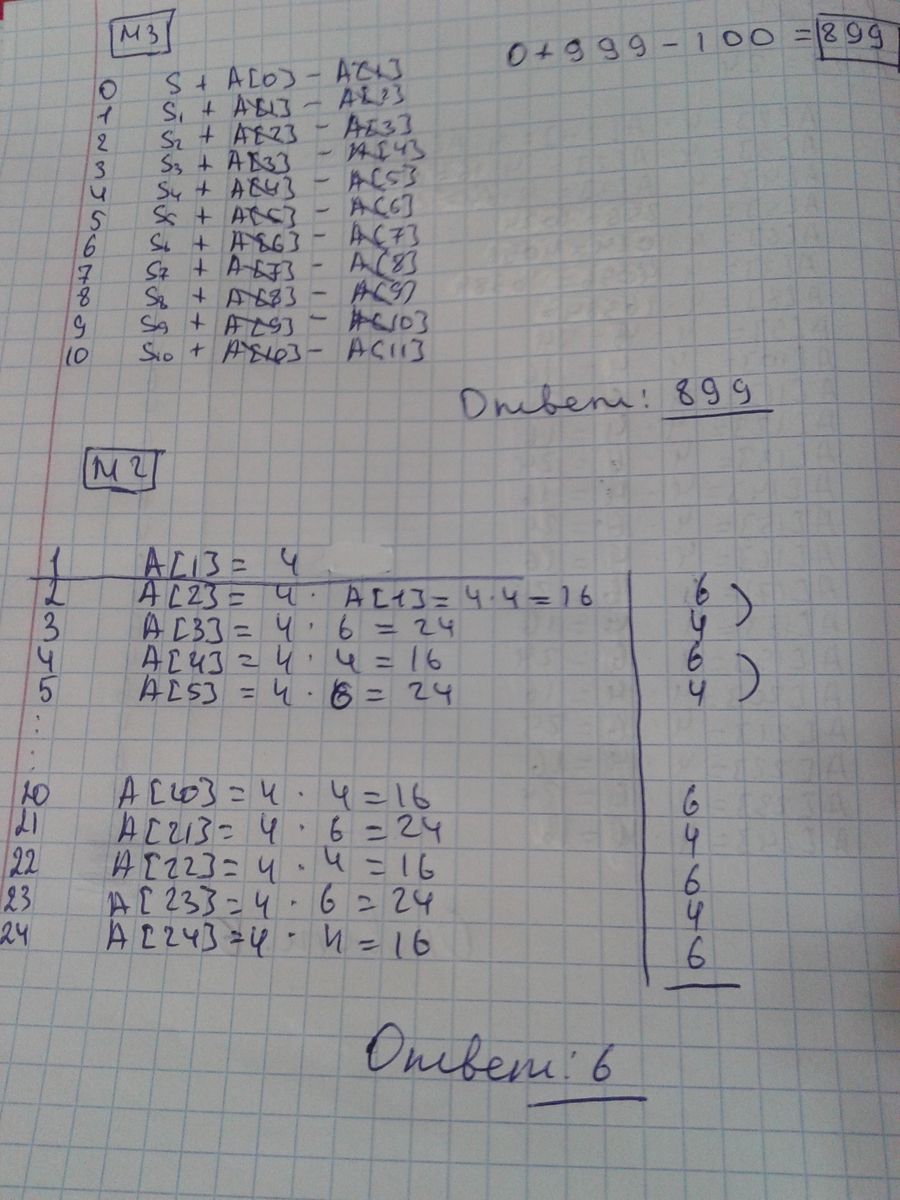 №3
0+999-100=899
0 S + A[0] - A[1]
1 S₁ + A[1] - A[2]
2 S₂ + A[2] - A[3]
3 S₃ + A[3] - A[4]
4 S₄ + A[4] - A[5]
5 S₅ + A[5] - A[6]
6 S₆ + A[6] - A[7]
7 S₇ + A[7] - A[8]
8 S₈ + A[8] - A[9]
9 S₉ + A[9] - A[10]
10 S₁₀ + A[10] - A[11]
Ответ: 899
№2
1 A[1] = 4
2 A[2] = 4 · A[1] = 4·4 = 16 6
3 A[3] = 4 · 6 = 24 4
4 A[4] = 4 · 4 = 16 6
5 A[5] = 4 · 6 = 24 4
:
:
20 A[20] = 4 · 4 = 16 6
21 A[21] = 4 · 6 = 24 4
22 A[22] = 4 · 4 = 16 6
23 A[23] = 4 · 6 = 24 4
24 A[24] = 4 · 4 = 16 6
Ответ: 6